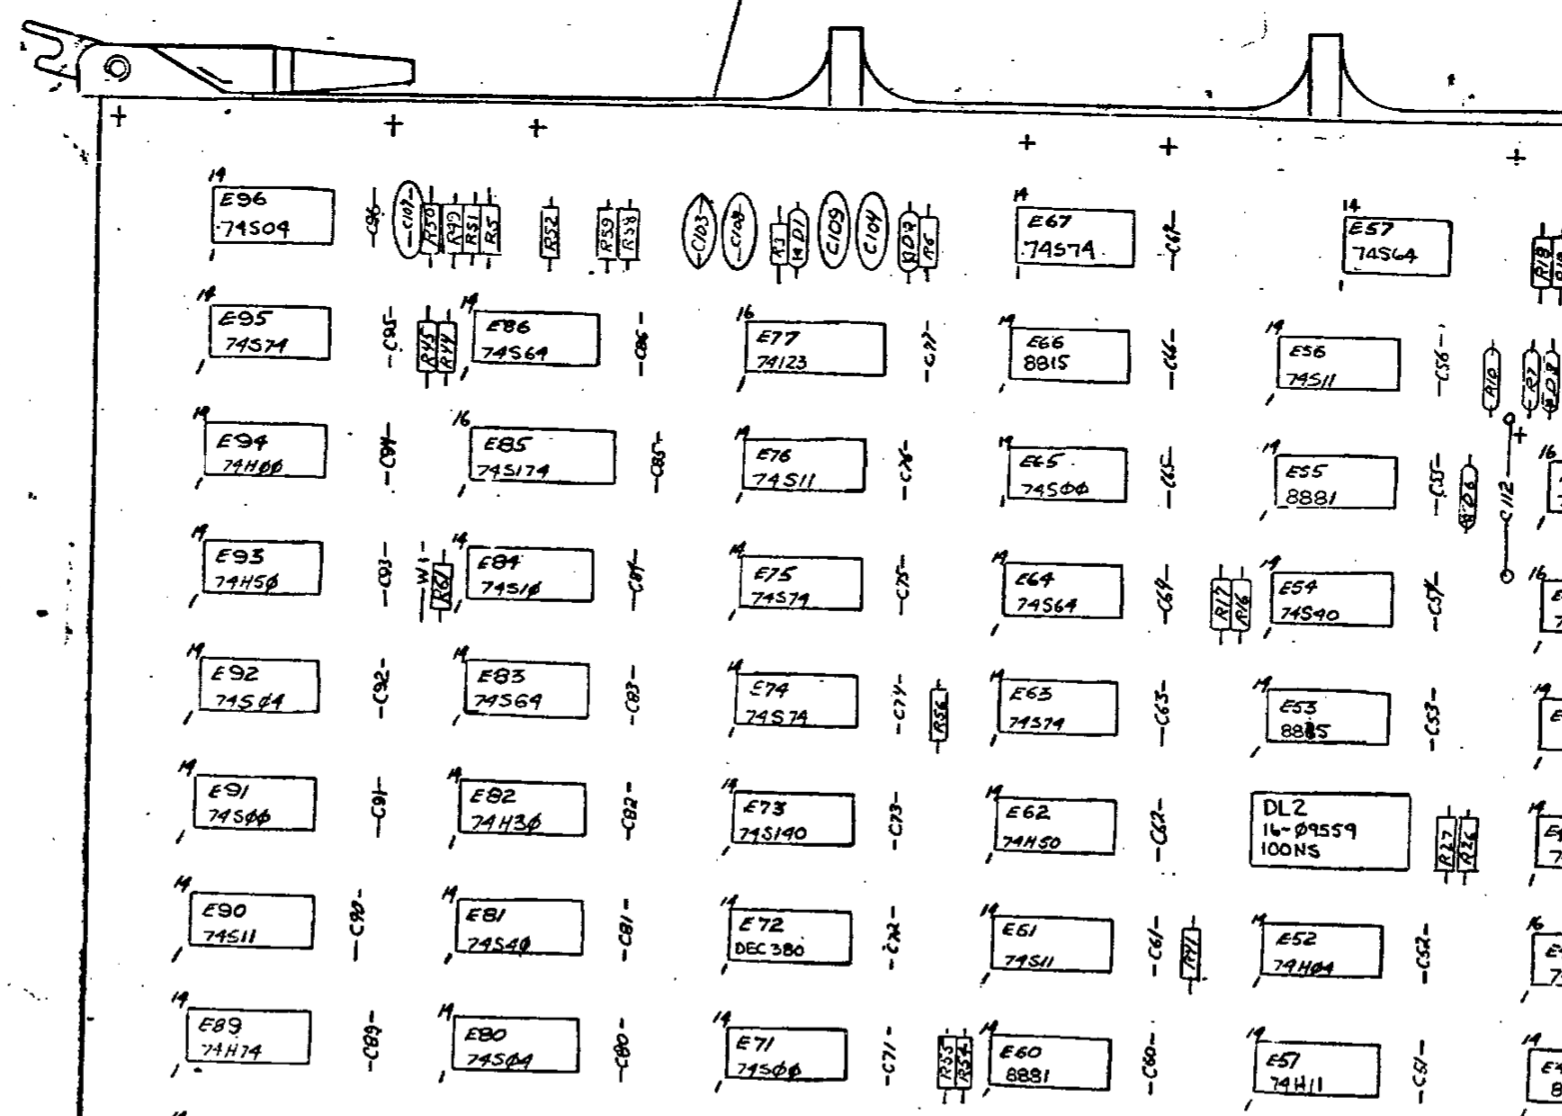 14
E96
74S04
C96
C107
R50
R49
R51
R5
R52
R59
R58
C103
C108
R3
D1
C109
C104
D2
R6
14
E67
74S74
C67
14
E57
74S64
R18
14
E95
74S74
C95
R45
R44
14
E86
74S64
C86
16
E77
74123
C77
14
E66
8815
C66
14
E56
74S11
C56
R10
R7
D3
14
E94
74HØØ
C94
16
E85
74S174
C85
14
E76
74S11
C76
14
E65
74SØØ
C65
14
E55
8881
C55
D6
C112
16
14
E93
74H5Ø
C93
W1
R61
14
E84
74S1Ø
C84
14
E75
74S74
C75
14
E64
74S64
C64
R17
R16
14
E54
74S40
C54
16
14
E92
74SØ4
C92
14
E83
74S64
C83
14
E74
74S74
C74
R56
14
E63
74S74
C63
14
E53
8815
C53
14
14
E91
74SØØ
C91
14
E82
74H3Ø
C82
14
E73
74S140
C73
14
E62
74H50
C62
DL2
16-Ø9559
100NS
R27
R26
14
14
E90
74S11
C90
14
E81
74S4Ø
C81
14
E72
DEC 380
C72
14
E61
74S11
C61
R41
14
E52
74HØ4
C52
16
14
E89
74H74
C89
14
E80
74SØ4
C80
14
E71
74SØØ
C71
R55
R54
14
E60
8881
C60
14
E51
74H11
C51
14
14